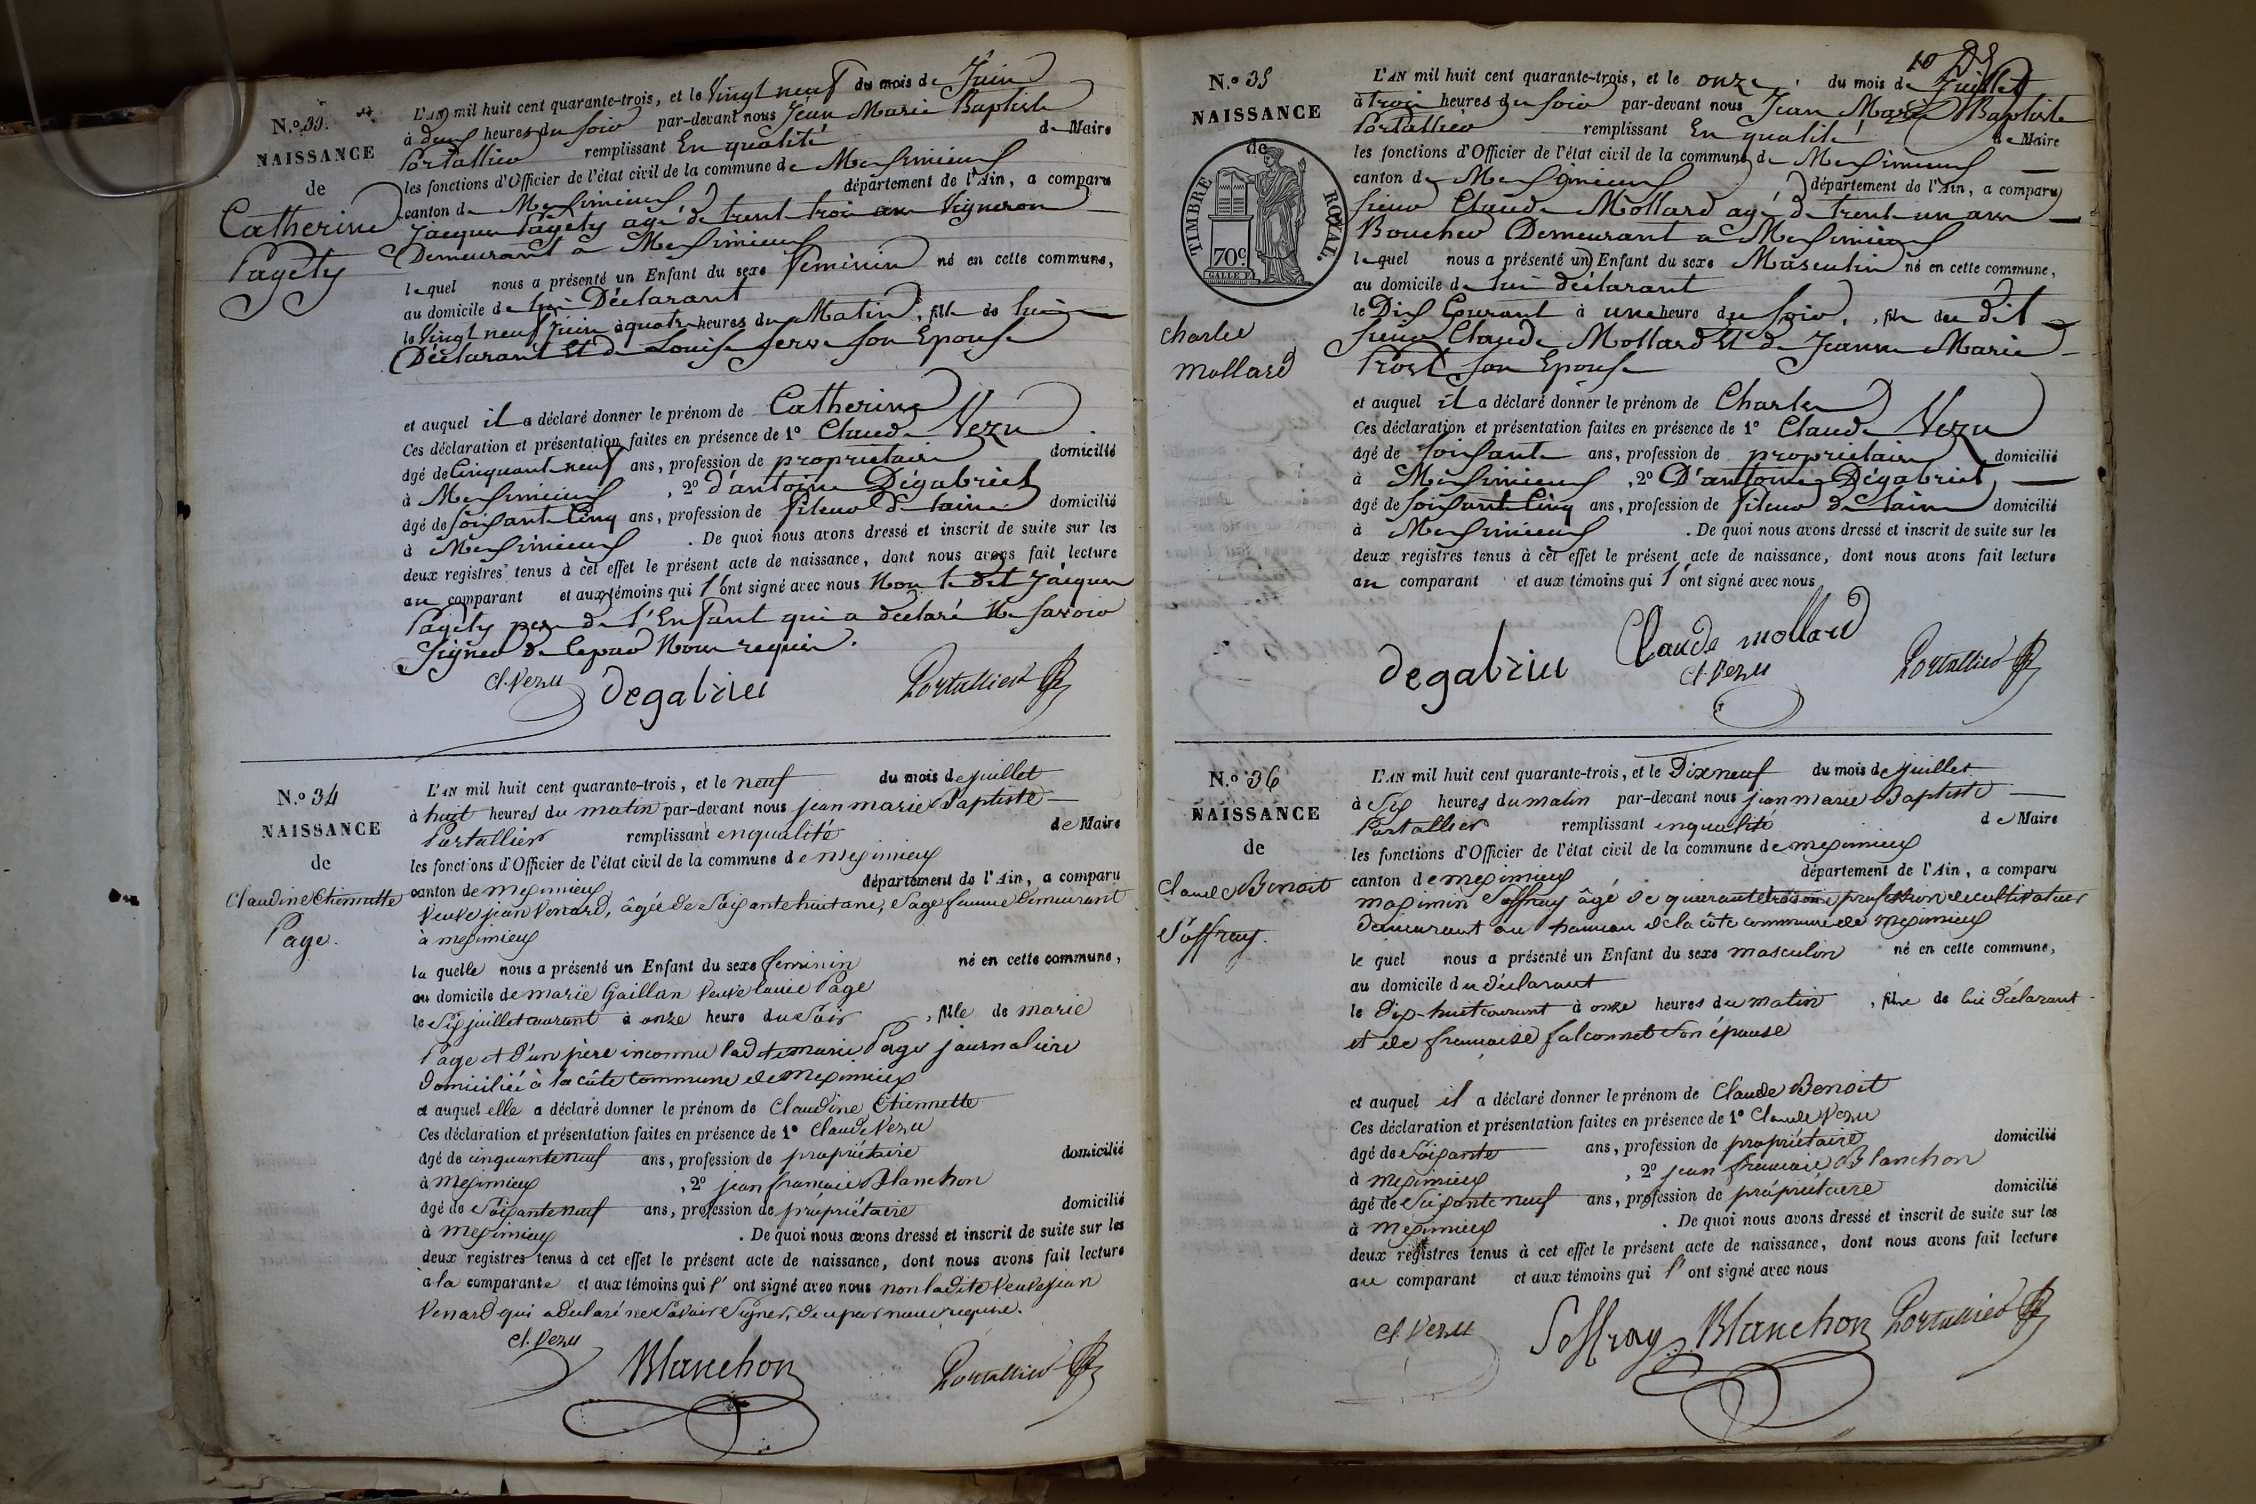 N.º 33.
NAISSANCE
de
Catherine
Pagety
L'AN mil huit cent quarante-trois, et le Vingt neuf du mois de Juin
à deux heures du soir par-devant nous Jean Marie Baptiste
Portallier remplissant En qualité de Maire
les fonctions d'Officier de l'état civil de la commune de Meximieux
canton de Meximieux département de l'Ain, a comparu
Jacques Pagety agé de trente trois ans Vigneron
Demeurant a Meximieux
lequel nous a présenté un Enfant du sexe Feminin né en cette commune,
au domicile de lui Déclarant
le Vingt neuf Juin à quatre heures du Matin, fille de lui
Déclarant Et de Louise Serve son Epouse
et auquel il a déclaré donner le prénom de Catherine
Ces déclaration et présentation faites en présence de 1º Claude Vezu
âgé de Cinquante neuf ans, profession de proprietaire domicilié
à Meximieux, 2º d'antoine Dégabriel
âgé de soixante Cinq ans, profession de fileur de laine domicilié
à Meximieux. De quoi nous avons dressé et inscrit de suite sur les
deux registres tenus à cet effet le présent acte de naissance, dont nous avons fait lecture
au comparant et aux témoins qui l'ont signé avec nous Non le dit Jacques
Pagety pere de l'Enfant qui a déclaré Ne savoir
Signer de ce par Nous requis.
Cl. Vezu degabriel Portallier
N.º 34
NAISSANCE
de
Claudine Etiennette
Page.
L'AN mil huit cent quarante-trois, et le neuf du mois de juillet
à huit heures du matin par-devant nous jean marie Baptiste
Portallier remplissant en qualité de Maire
les fonctions d'Officier de l'état civil de la commune de meximieux
canton de meximieux département de l'Ain, a comparu
Veuve jean Venard, âgée de Soixante huit ans, Sage femme Demeurant
à meximieux
la quelle nous a présenté un Enfant du sexe feminin né en cette commune,
au domicile de marie Gaillan Veuve Page
le Six juillet courant à onze heure du Soir, fille de marie
Page et d'un père inconnu ladite marie Page journalière
Domiciliée à la côte commune de Meximieux
et auquel elle a déclaré donner le prénom de Claudine Etiennette
Ces déclaration et présentation faites en présence de 1º Claude Vezu
âgé de cinquante neuf ans, profession de propriétaire domicilié
à Meximieux, 2º jean françois Blanchon
âgé de Soixante neuf ans, profession de propriétaire domicilié
à Meximieux. De quoi nous avons dressé et inscrit de suite sur les
deux registres tenus à cet effet le présent acte de naissance, dont nous avons fait lecture
à la comparante et aux témoins qui l'ont signé avec nous non ladite Veuve jean
Venard qui a déclaré ne Savoir Signer, de ce par nous requise.
Cl. Vezu
Blanchon Portallier
10
N.º 35
NAISSANCE
de
TIMBRE ROYAL.
70c.
Charles
Mollard
L'AN mil huit cent quarante-trois, et le onze du mois de Juillet
à trois heures du soir par-devant nous Jean Marie Baptiste
Portallier remplissant En qualité de Maire
les fonctions d'Officier de l'état civil de la commune de Meximieux
canton de Meximieux département de l'Ain, a comparu
sieur Claude Mollard agé de trente un ans
Boucher Demeurant a Meximieux
lequel nous a présenté un Enfant du sexe Masculin né en cette commune,
au domicile de lui déclarant
le Dix Courant à une heure du soir, fils du dit
sieur Claude Mollard Et de Jeanne Marie
Prost son Epouse
et auquel il a déclaré donner le prénom de Charles
Ces déclaration et présentation faites en présence de 1º Claude Vezu
âgé de soixante ans, profession de propriétaire domicilié
à Meximieux, 2º D'antoine Dégabriel
âgé de soixante Cinq ans, profession de fileur de laine domicilié
à Meximieux. De quoi nous avons dressé et inscrit de suite sur les
deux registres tenus à cet effet le présent acte de naissance, dont nous avons fait lecture
au comparant et aux témoins qui l'ont signé avec nous
degabriel Claude mollard
Cl. Vezu Portallier
N.º 36
NAISSANCE
de
Claude Benoit
Soffray.
L'AN mil huit cent quarante-trois, et le Dix neuf du mois de juillet
à Six heures du matin par-devant nous jean marie Baptiste
Portallier remplissant en qualité de Maire
les fonctions d'Officier de l'état civil de la commune de meximieux
canton de meximieux département de l'Ain, a comparu
maximin Soffray âgé de quarante trois ans profession de cultivateur
demeurant au hameau de la côte commune de Meximieux
le quel nous a présenté un Enfant du sexe masculin né en cette commune,
au domicile du déclarant
le dix-huit courant à onze heures du matin, fils de lui déclarant
et de françoise falconnet Son épouse
et auquel il a déclaré donner le prénom de Claude Benoit
Ces déclaration et présentation faites en présence de 1º Claude Vezu
âgé de Soixante ans, profession de propriétaire domicilié
à meximieux, 2º jean françois Blanchon
âgé de Soixante neuf ans, profession de propriétaire domicilié
à meximieux. De quoi nous avons dressé et inscrit de suite sur les
deux registres tenus à cet effet le présent acte de naissance, dont nous avons fait lecture
au comparant et aux témoins qui l'ont signé avec nous
Cl. Vezu Soffray Blanchon Portallier